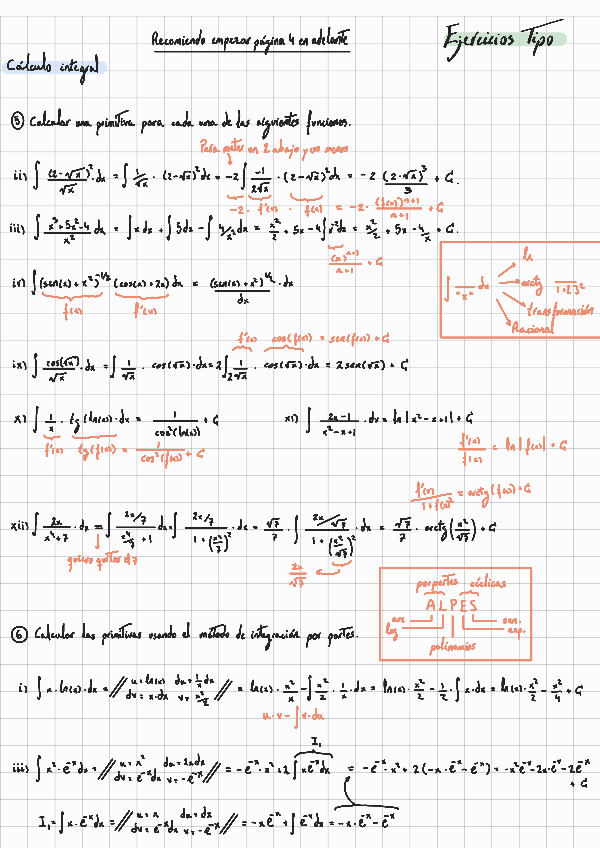 Recomiendo empezar página 4 en adelante
Ejercicios Tipo
Cálculo integral
⑤ Calcular una primitiva para cada una de las siguientes funciones.
Para meter un 2 abajo y un menos
ii) ∫ (2-√x)²/√x · dx = ∫ 1/√x · (2-√x)² dx = -2 ∫ -1/2√x · (2-√x)² dx = -2 (2-√x)³/3 + C.
-2 · f'(x) · f(x) = -2 · (f(x))ⁿ⁺¹/n+1 + C
iii) ∫ x³+5x²-4/x² dx = ∫ x dx + ∫ 5dx - ∫ 4/x² dx = x²/2 + 5x - 4∫ x⁻² dx = x²/2 + 5x - 4/x + C.
(x)ⁿ⁺¹/n+1 + C
∫ /"x" dx
ln
arctg /1+( )²
transformación
Racional
iv) ∫ (sen(x) + x²)^-1/2 (cos(x) + 2x) dx = (sen(x) + x²)^1/2/dx · dx
f(x) f'(x)
f'(x) cos(f(x)) = sen(f(x)) + C
ix) ∫ cos(√x)/√x · dx = ∫ 1/√x · cos(√x) · dx = 2∫ 1/2√x · cos(√x) · dx = 2 sen(√x) + C
x) ∫ 1/x · tg(ln(x)) · dx = 1/cos²(ln(x)) + C
xi) ∫ 2x-1/x²-x+1 · dx = ln|x²-x+1| + C
f'(x) tg(f(x)) = 1/cos²(f(x)) + C
f'(x)/f(x) = ln|f(x)| + C
f'(x)/1+f(x)² = arctg(f(x)) + C
xii) ∫ 2x/x⁴+7 · dx = ∫ 2x/7/x⁴/7 +1 · dx = ∫ 2x/7/1+(x²/√7)² · dx = √7/7 · ∫ 2x/√7/1+(x²/√7)² · dx = √7/7 · arctg(x²/√7) + C
quiero quitar el 7
2x/√7
por partes cíclicas
A L P E S
arc
log
sen.
exp.
polinomios
⑥ Calcular las primitivas usando el método de integración por partes.
i) ∫ x · ln(x) · dx = // u = ln(x) du = 1/x dx
dv = x · dx v = x²/2 // = ln(x) · x²/2 - ∫ x²/2 · 1/x · dx = ln(x) · x²/2 - 1/2 · ∫ x · dx = ln(x) · x²/2 - x²/4 + C
u · v - ∫ v · du
I₁
iii) ∫ x² · e⁻ˣ dx = // u = x² du = 2x dx
dv = e⁻ˣ dx v = -e⁻ˣ // = -e⁻ˣ · x² + 2 ∫ x e⁻ˣ dx = -e⁻ˣ · x² + 2(-x · e⁻ˣ - e⁻ˣ) = -x² e⁻ˣ - 2x · e⁻ˣ - 2e⁻ˣ
+ C
I₁ = ∫ x · e⁻ˣ dx = // u = x du = dx
dv = e⁻ˣ dx v = -e⁻ˣ // = -x e⁻ˣ + ∫ e⁻ˣ dx = -x · e⁻ˣ - e⁻ˣ